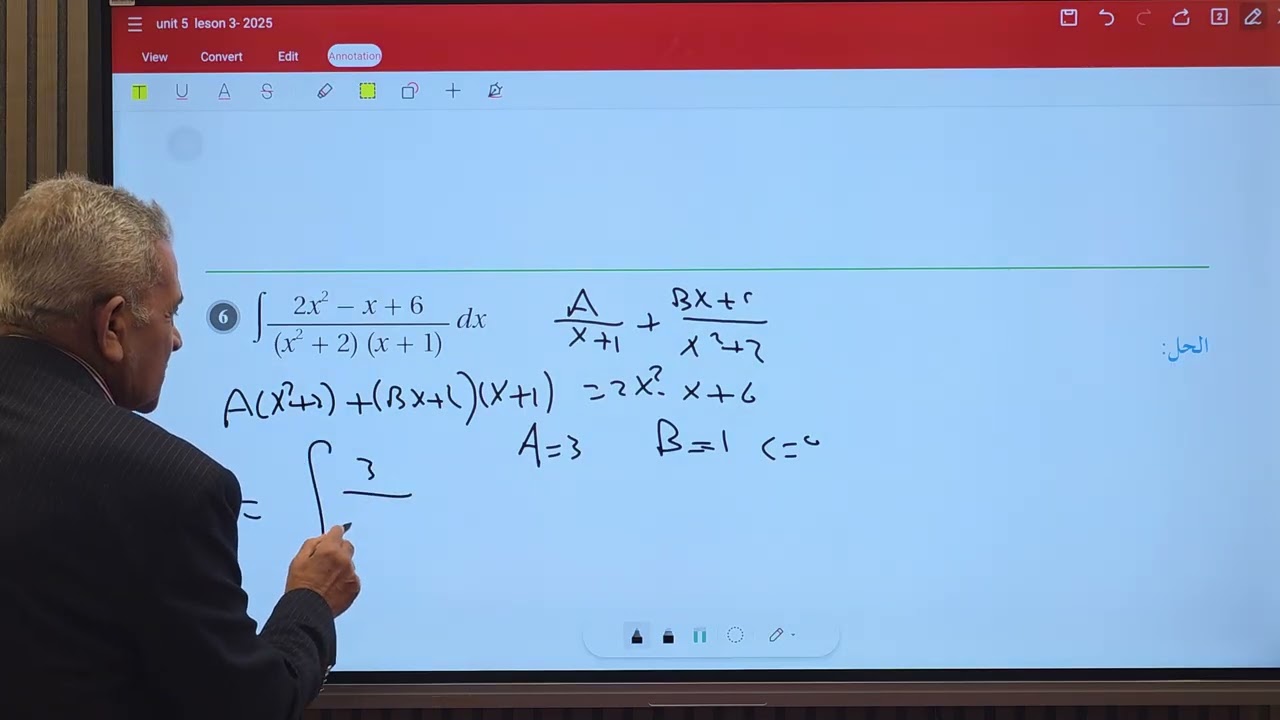 unit 5 leson 3- 2025
2
View Convert Edit Annotation
T U A S
6 ∫ (2x² − x + 6) / ((x² + 2) (x + 1)) dx A/(x+1) + (Bx+c)/(x²+2)
الحل:
A(x²+2) + (Bx+c)(x+1) = 2x² - x+6
A=3 B=1 c=0
= ∫ 3